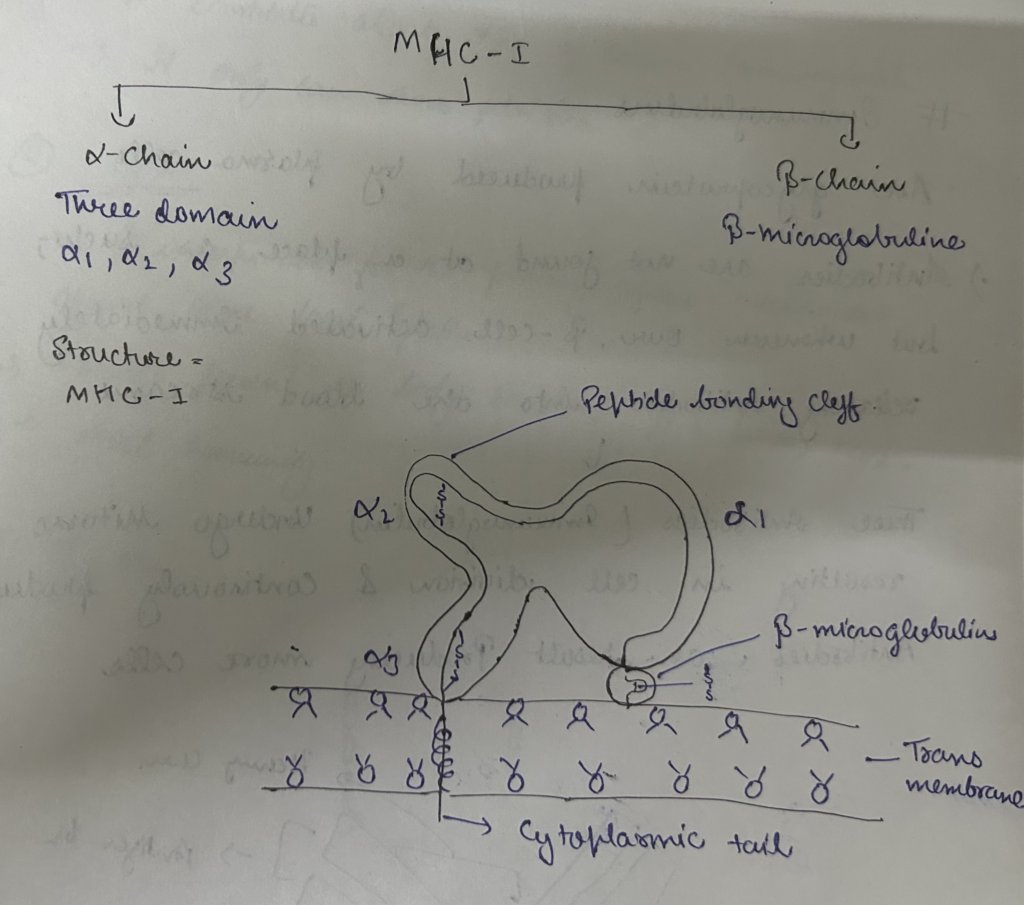 MHC-I
α-chain
Three domain
α1, α2, α3
β-chain
β-microglobuline
Structure =
MHC-I
Peptide bonding cleft.
α2
α1
β-microglobulin
α3
Trans
membrane
Cytoplasmic tail